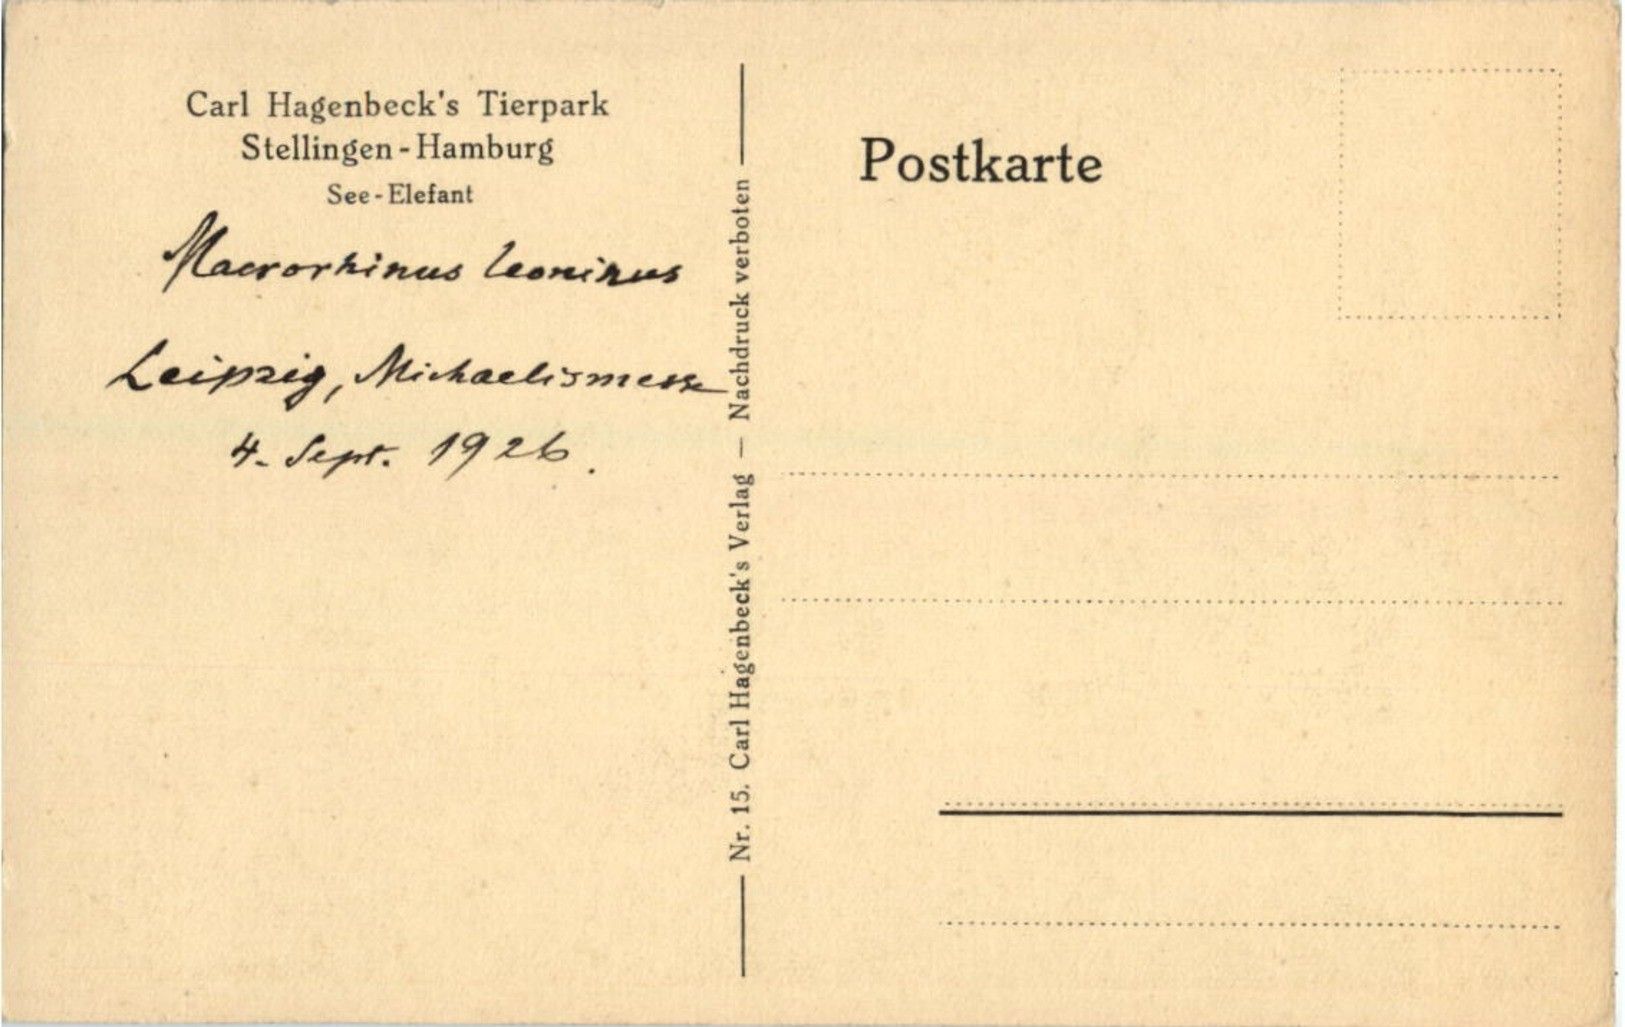 Carl Hagenbeck's Tierpark
Stellingen-Hamburg
See-Elefant
Macrorhinus leoninus
Leipzig, Michaelismesse
4. Sept. 1926.
Nr. 15. Carl Hagenbeck's Verlag — Nachdruck verboten
Postkarte